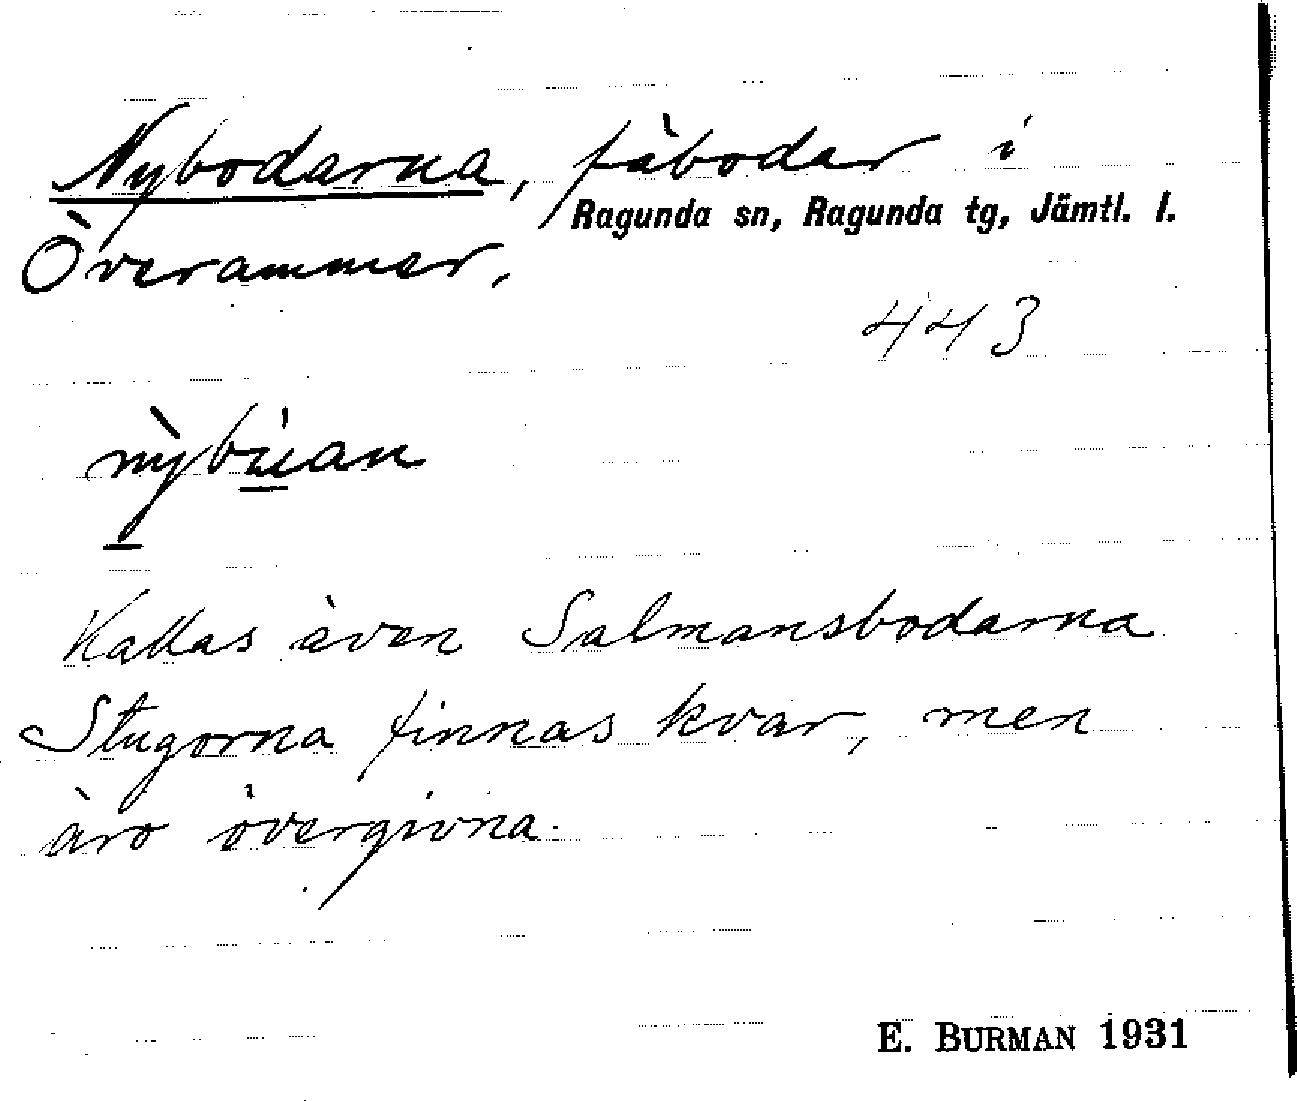 Nybodarna, fäbodar i
Ragunda sn, Ragunda tg, Jämtl. l.
Överammer.
443
nỳbúan
Kallas även Salmansbodarna
Stugorna finnas kvar, men
äro övergivna.
E. BURMAN 1931